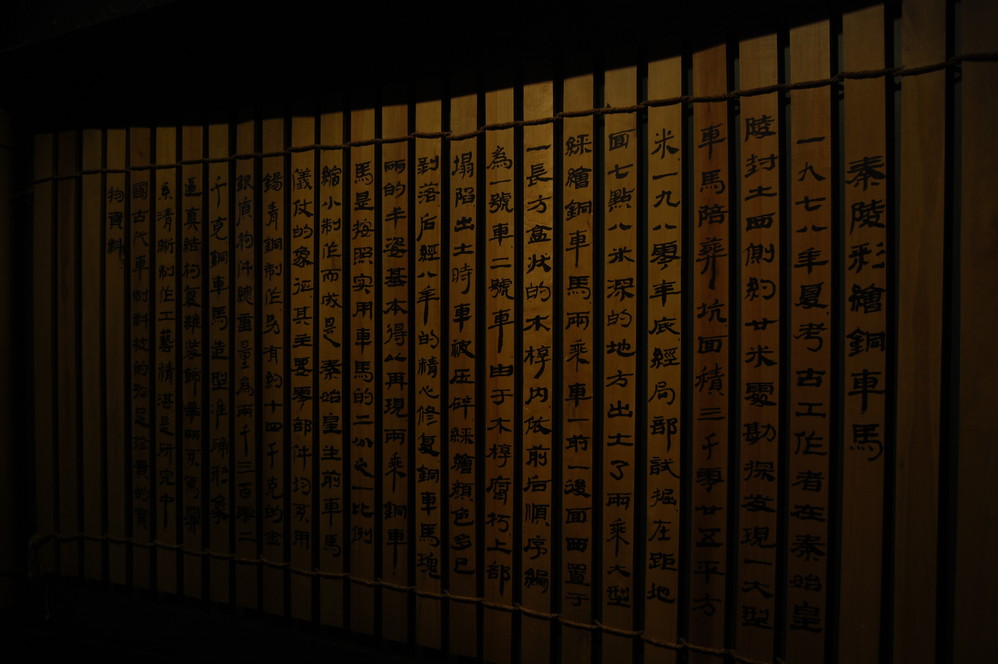 秦陵彩繪銅車馬
一九七八年夏考古工作者在秦始皇
陵封土西側約廿米處勘探发現一大型
車馬陪葬坑面積三千零廿五平方
米一九八零年底經局部試掘在距地
面七點八米深的地方出土了兩乘大型
綵繪銅車馬兩乘車一前一後面西置于
一長方盒状的木椁内依前后順序編
為一號車二號車由于木椁腐朽上部
塌陷出土時車被压碎綵繪顏色多已
剥落后經八年的精心修复銅車馬瑰
丽的丰姿基本得以再現兩乘銅車
馬是按照实用車馬的二分之一比例
縮小制作而成是秦始皇生前車馬
儀仗的象征其主要零部件均采用
錫青銅制作另有約十四千克的金
銀質构件總重量為兩千三百零二
千克銅車馬造型准确形象
逼真結构复雜裝飾華丽
系清晰制作工藝精湛是研究中
國古代車制
物資料